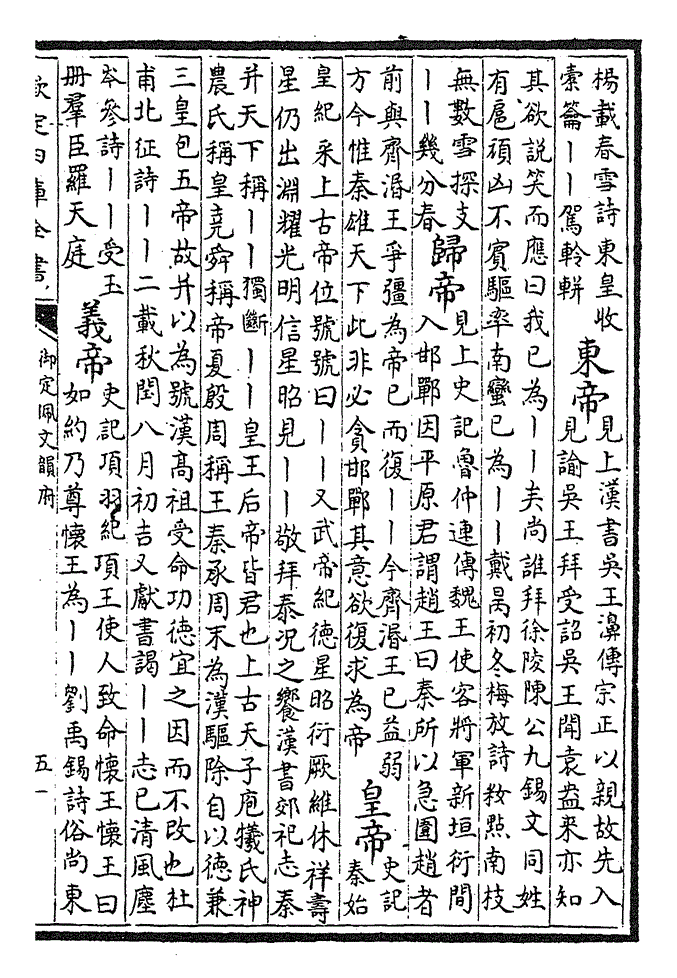 楊載春雪詩東皇收
橐籥丨丨駕軨軿
東帝
見上漢書吳王濞傳宗正以親故先入
見諭吳王拜受詔吳王聞袁盎来亦知
其欲説笑而應曰我已為丨丨矣尚誰拜徐陵陳公九錫文同姓
有扈頑凶不賓驅率南蠻已為丨丨戴昺初冬梅放詩粧㸃南枝
無數雪探支
丨丨幾分春
歸帝
見上史記魯仲連傳魏王使客將軍新垣衍間
入邯鄲因平原君謂趙王曰秦所以急圍趙者
前與齊湣王爭彊為帝已而復丨丨今齊湣王已益弱
方今惟秦雄天下此非必貪邯鄲其意欲復求為帝
皇帝
史記
秦始
皇紀采上古帝位號號曰丨丨又武帝紀德星昭衍厥維休祥壽
星仍出淵耀光明信星昭見丨丨敬拜泰况之饗漢書郊祀志秦
并天下稱丨丨獨斷丨丨皇王后帝皆君也上古天子庖犧氏神
農氏稱皇堯舜稱帝夏殷周稱王秦承周末為漢驅除自以德兼
三皇包五帝故并以為號漢髙祖受命功德宜之因而不改也杜
甫北征詩丨丨二載秋閏八月初吉又獻書謁丨丨志已清風塵
岑參詩丨丨受玉
册羣臣羅天庭
義帝
史記項羽紀項王使人致命懷王懷王曰
如約乃尊懷王為丨丨劉禹錫詩俗尚東
欽定四庫全書
御定佩文韻府
五一